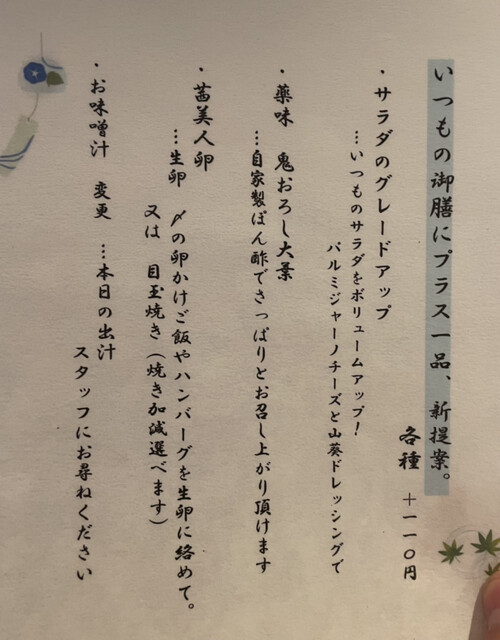 いつもの御膳にプラス一品、新提案。
各種 +一一〇円
・サラダのグレードアップ
…いつものサラダをボリュームアップ!
パルミジャーノチーズと山葵ドレッシングで
・薬味 鬼おろし大葉
…自家製ぽん酢でさっぱりとお召し上がり頂けます
・茜美人卵
…生卵 〆の卵かけご飯やハンバーグを生卵に絡めて。
又は 目玉焼き(焼き加減選べます)
・お味噌汁 変更 …本日の出汁
スタッフにお尋ねください